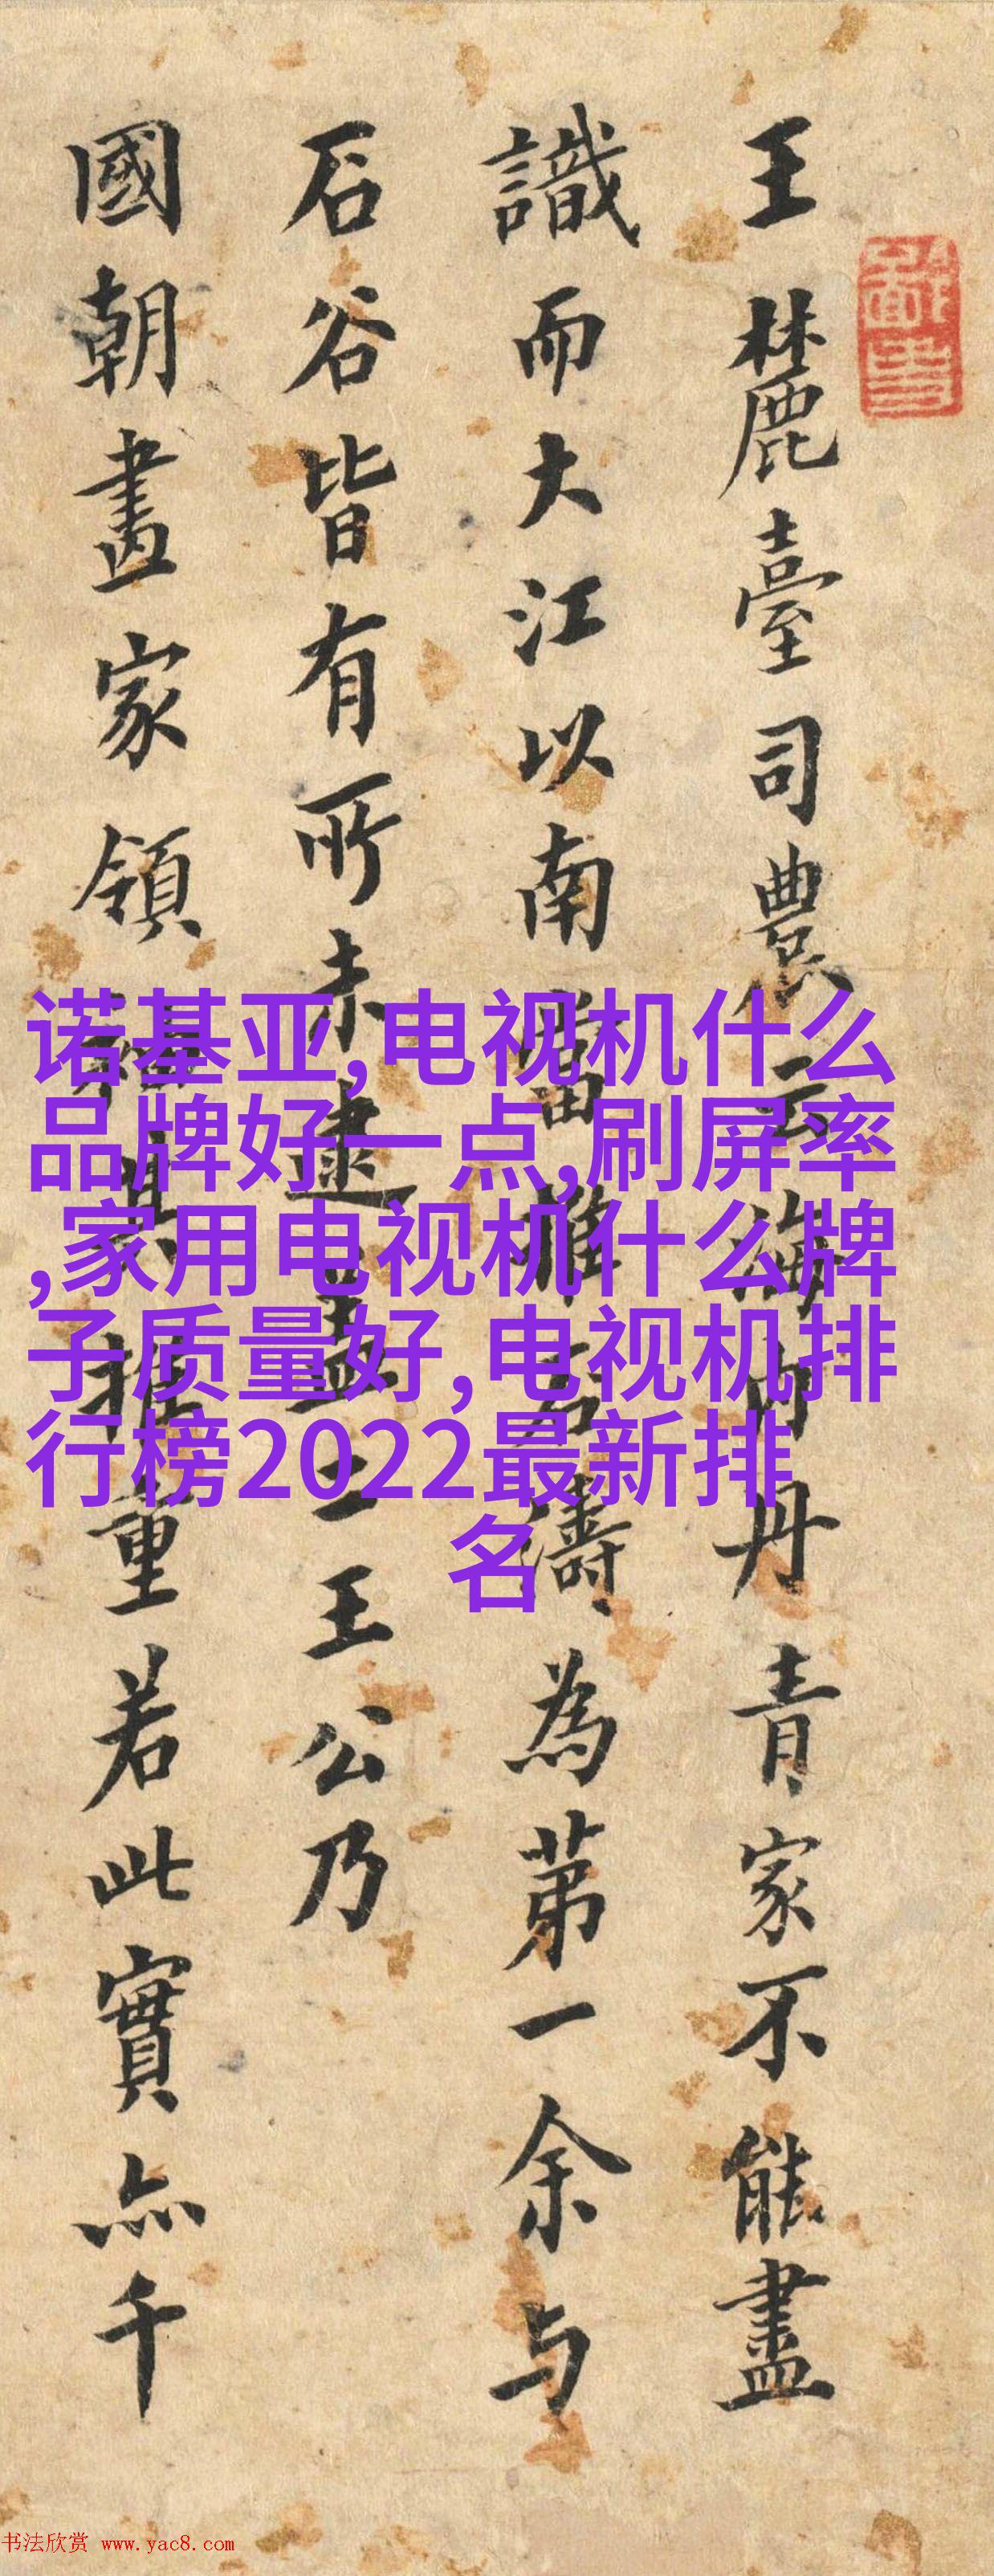 王麓臺司農云海内丹青家不能盡
識而大江以南當推石濤為第一余与
石谷皆有所未逮盖二王公乃
國朝畫家領袖其推重若此實亦千
诺基亚,电视机什么
品牌好一点,刷屏率
,家用电视机什么牌
子质量好,电视机排
行榜2022最新排
名
书法欣赏 www.yac8.com